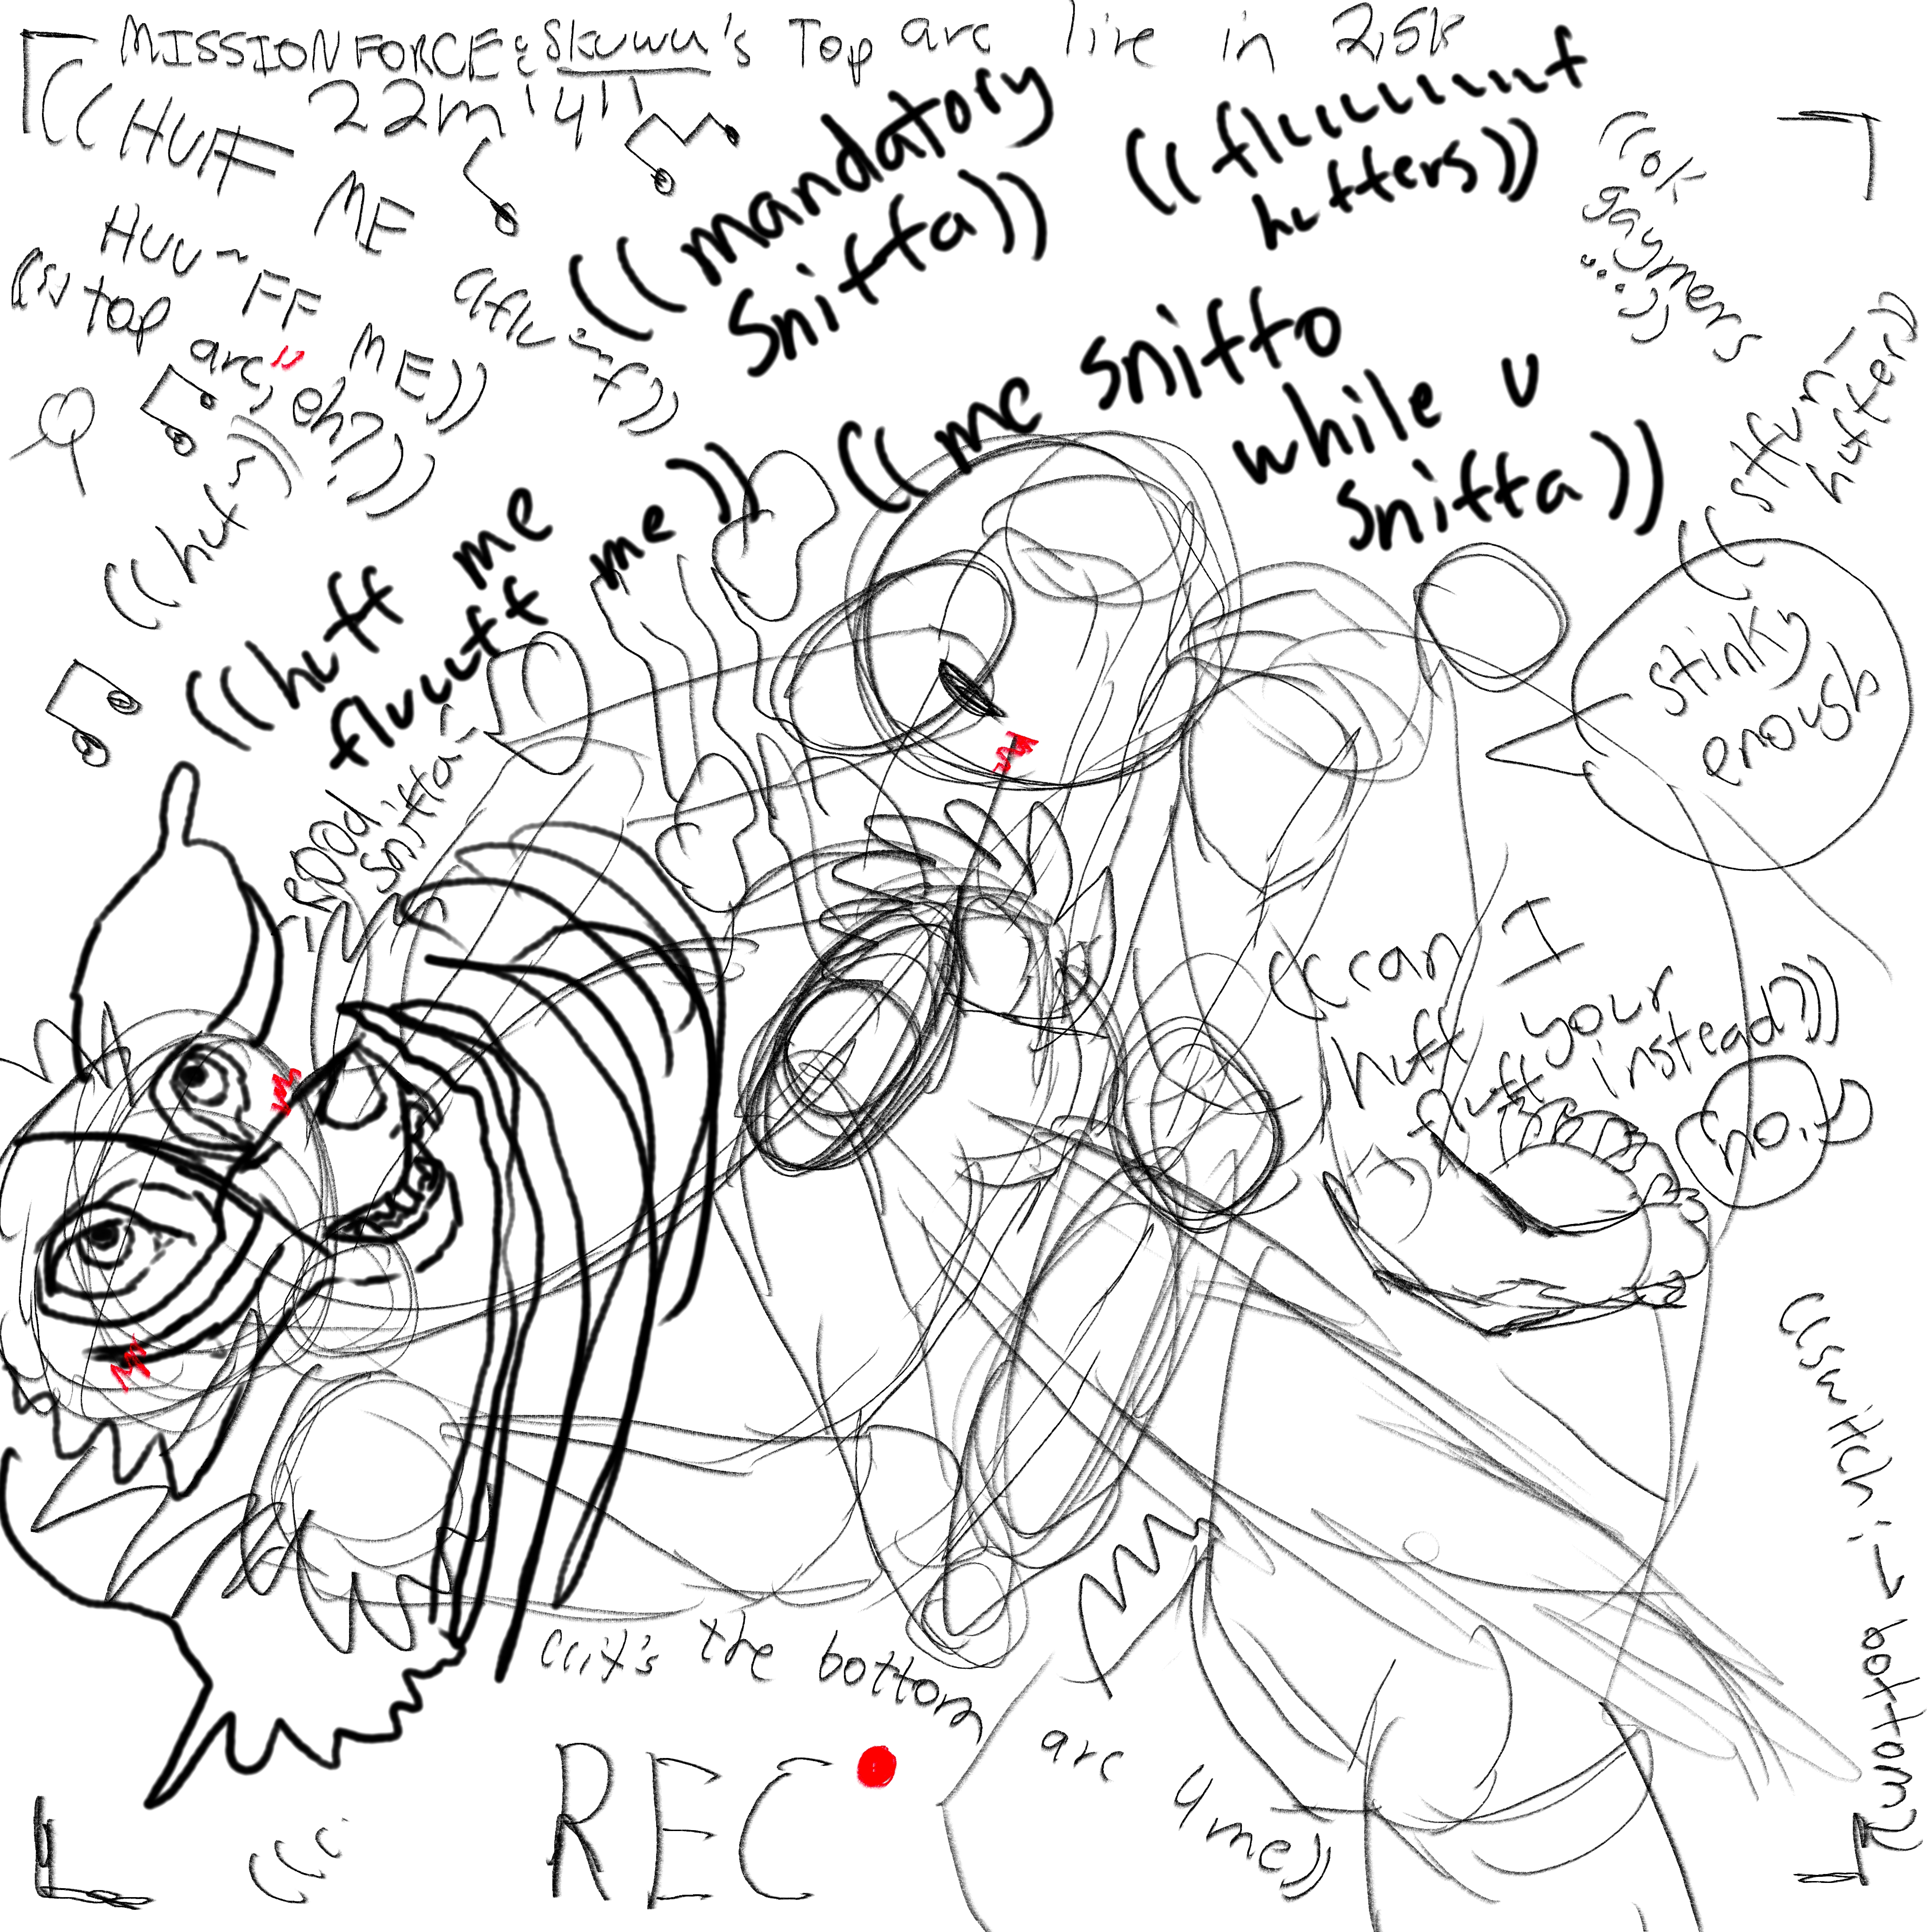 MISSIONFORCE & Skuwu's Top arc live in 2,5k
22m'4"
((HUFF ME
HUU~FF ME))
((mandatory
Sniffa))
((fluuuuuuff
huffers))
((ok
gaymers
top arc," eh?))
((huf~))
((me sniffo
while u
sniffa))
((huff me
fluuuff me))
good
sniffa
huffer))
stinky
enough
((can I
huff your
fluff instead?))
no.
((switch
bottom))
((it's the bottom
arc 4 me))
REC